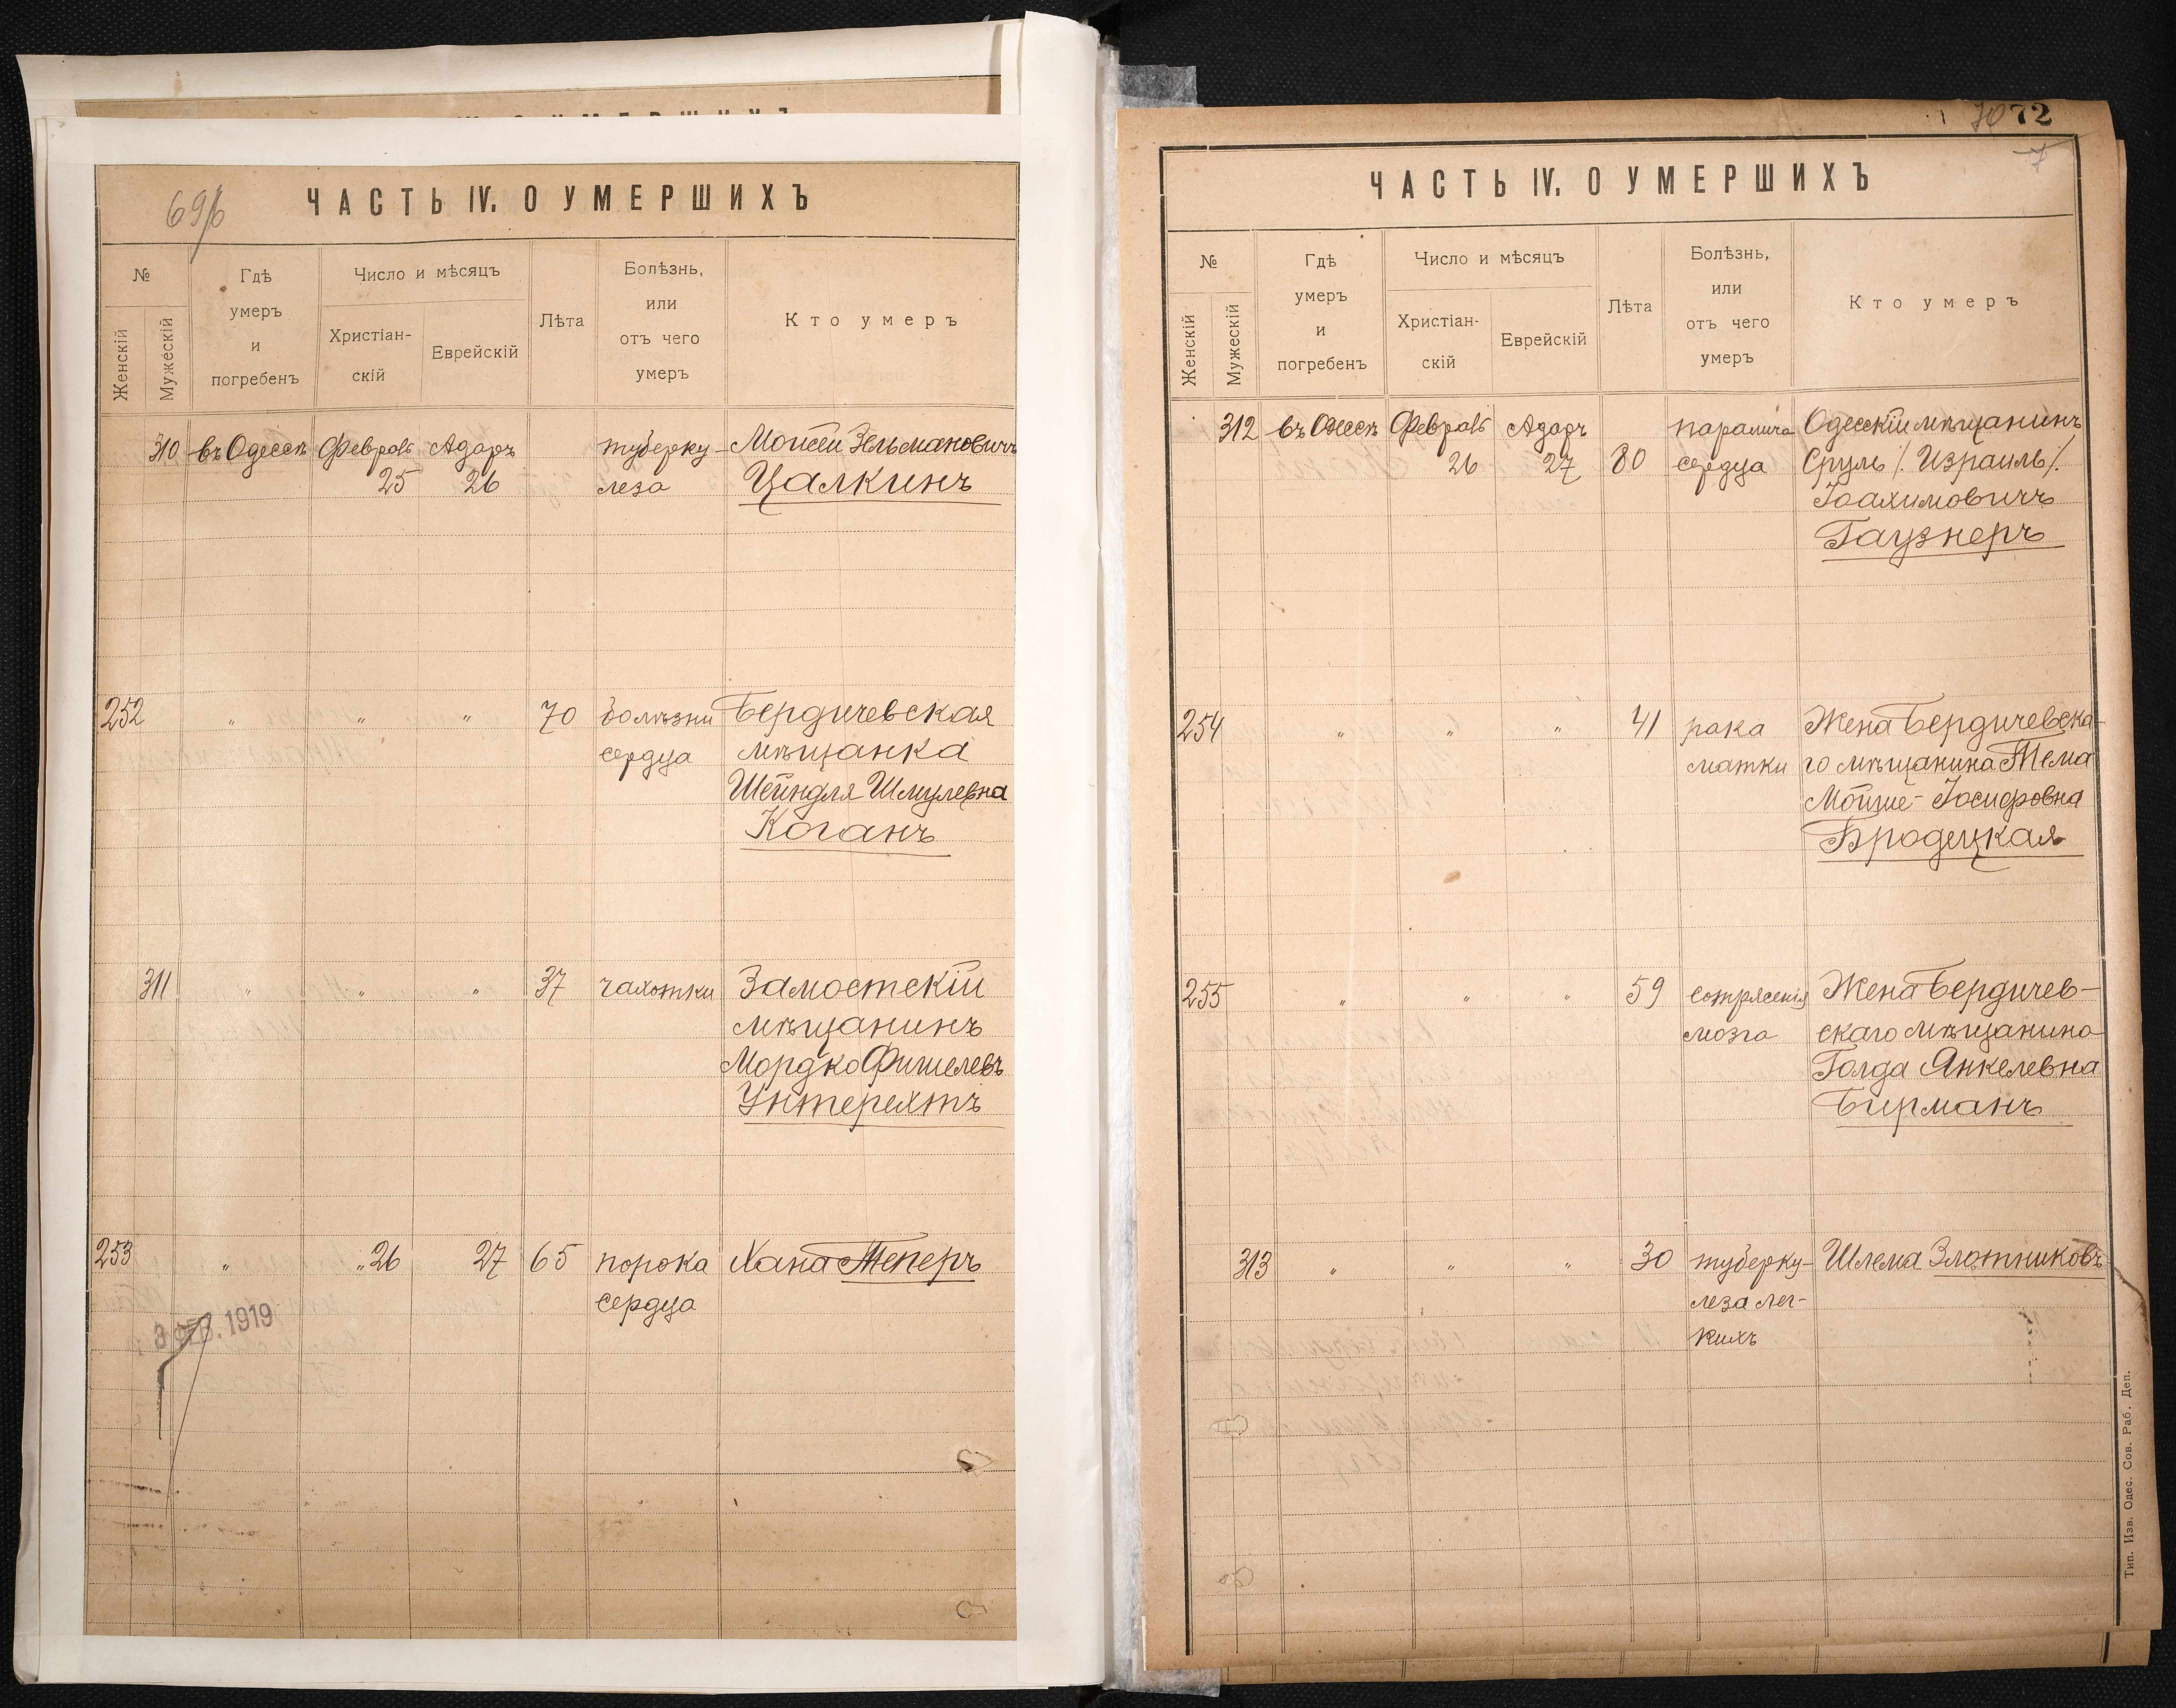 69/б
ЧАСТЬ IV. О УМЕРШИХЪ
№
Женскій
Мужескій
Гдѣ
умеръ
и
погребенъ
Число и мѣсяцъ
Христіан-
скій
Еврейскій
Лѣта
Болѣзнь,
или
отъ чего
умеръ
Кто умеръ
310 въ Одессѣ Февраль Адаръ туберку- Моисей Зельмановичъ
25 26 леза Цалкинъ
252 " " " 70 болѣзни Бердичевская
сердца мѣщанка
Шейндля Шмулевна
Коганъ
311 " " " 37 чахотки Замостскій
мѣщанинъ
Мордко Фишелевъ
Унтерехтъ
253 " " 26 27 65 порока Хана Теперъ
сердца
1919
70 72
7
ЧАСТЬ IV. О УМЕРШИХЪ
№
Женскій
Мужескій
Гдѣ
умеръ
и
погребенъ
Число и мѣсяцъ
Христіан-
скій
Еврейскій
Лѣта
Болѣзнь,
или
отъ чего
умеръ
Кто умеръ
312 въ Одессѣ Февраль Адаръ паралича Одесскій мѣщанинъ
26 27 80 сердца Сруль /. Израиль /.
Іоахимовичъ
Гаузнеръ
254 " " " 41 рака Жена Бердичевска-
матки го мѣщанина Тема
Мойше-Іосифовна
Бродецкая
255 " " " 59 сотрясенія Жена Бердичев-
мозга скаго мѣщанина
Голда Янкелевна
Бирманъ
313 " " " 30 туберку- Шлема Злотниковъ
леза лег-
кихъ
Тип. Изв. Одес. Сов. Раб. Деп.